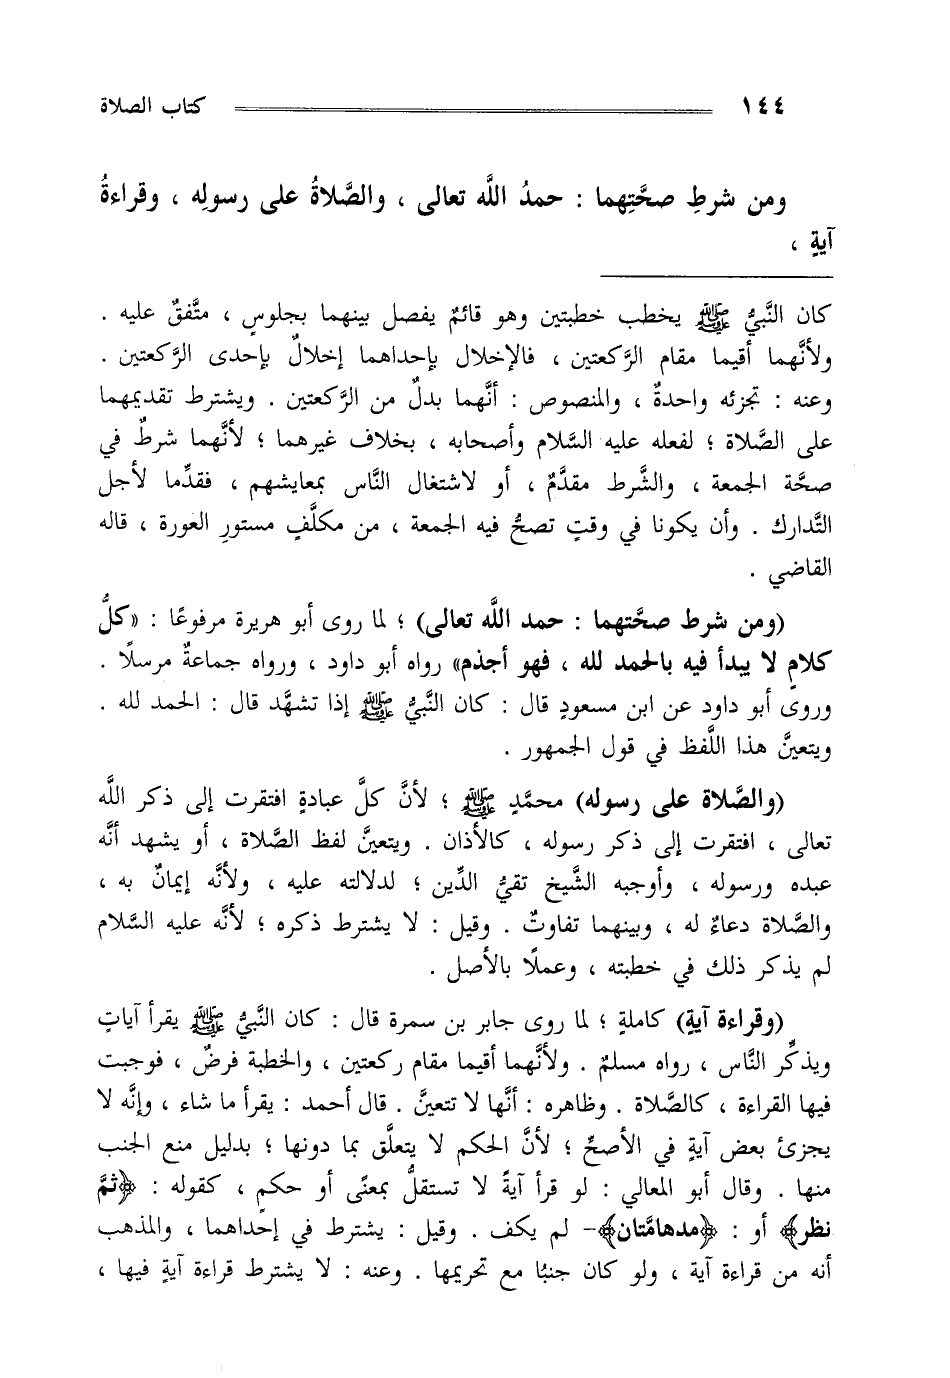 ١٤٤ كتاب الصلاة
ومن شرطِ صحَّتِهما : حمدُ اللَّه تعالى ، والصَّلاةُ على رسولِه ، وقراءةُ
آيةٍ ،
كان النَّبيُّ ﷺ يخطب خطبتين وهو قائمٌ يفصل بينهما بجلوسٍ ، متَّفقٌ عليه .
ولأنَّهما أقيما مقام الرَّكعتين ، فالإخلال بإحداهما إخلالٌ بإحدى الرَّكعتين .
وعنه : تجزئه واحدةٌ ، والمنصوص : أنَّهما بدلٌ من الرَّكعتين . ويشترط تقديمهما
على الصَّلاة ؛ لفعله عليه السَّلام وأصحابه ، بخلاف غيرهما ؛ لأنَّهما شرطٌ في
صحَّة الجمعة ، والشَّرط مقدَّمٌ ، أو لاشتغال النَّاس بمعايشهم ، فقدِّما لأجل
التَّدارك . وأن يكونا في وقتٍ تصحُّ فيه الجمعة ، من مكلَّفٍ مستورِ العورة ، قاله
القاضي .
(ومن شرط صحَّتهما : حمد اللَّه تعالى) ؛ لما روى أبو هريرة مرفوعًا : «كلُّ
كلامٍ لا يبدأ فيه بالحمد لله ، فهو أجذم» رواه أبو داود ، ورواه جماعةٌ مرسلًا .
وروى أبو داود عن ابن مسعودٍ قال : كان النَّبيُّ ﷺ إذا تشهَّد قال : الحمد لله .
ويتعينَّ هذا اللَّفظ في قول الجمهور .
(والصَّلاة على رسوله) محمَّدٍ ﷺ ؛ لأنَّ كلَّ عبادةٍ افتقرت إلى ذكر اللَّه
تعالى ، افتقرت إلى ذكر رسوله ، كالأذان . ويتعينَّ لفظ الصَّلاة ، أو يشهد أنَّه
عبده ورسوله ، وأوجبه الشَّيخ تقيُّ الدِّين ؛ لدلالته عليه ، ولأنَّه إيمانٌ به ،
والصَّلاة دعاءٌ له ، وبينهما تفاوتٌ . وقيل : لا يشترط ذكره ؛ لأنَّه عليه السَّلام
لم يذكر ذلك في خطبته ، وعملًا بالأصل .
(وقراءة آيةٍ) كاملةٍ ؛ لما روى جابر بن سمرة قال : كان النَّبيُّ ﷺ يقرأ آياتٍ
ويذكِّر النَّاس ، رواه مسلمٌ . ولأنَّهما أقيما مقام ركعتين ، والخطبة فرضٌ ، فوجبت
فيها القراءة ، كالصَّلاة . وظاهره : أنَّها لا تتعينَّ . قال أحمد : يقرأ ما شاء ، وإنَّه لا
يجزئ بعض آيةٍ في الأصحِّ ؛ لأنَّ الحكم لا يتعلَّق بما دونها ؛ بدليل منع الجنب
منها . وقال أبو المعالي : لو قرأ آيةً لا تستقلُّ بمعنًى أو حكمٍ ، كقوله : ﴿ثمَّ
نظر﴾ أو : ﴿مدهامَّتان﴾- لم يكف . وقيل : يشترط في إحداهما ، والمذهب
أنه من قراءة آية ، ولو كان جنبًا مع تحريمها . وعنه : لا يشترط قراءة آيةٍ فيها ،